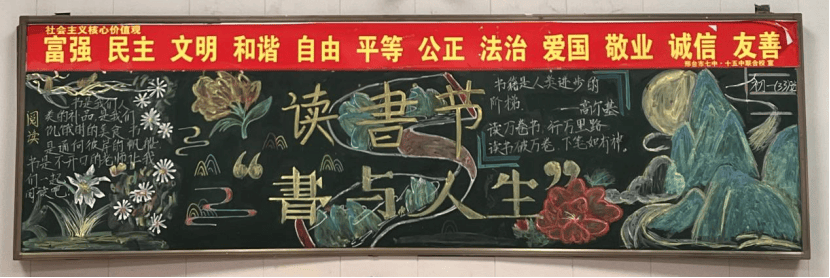 社会主义核心价值观
富强 民主 文明 和谐 自由 平等 公正 法治 爱国 敬业 诚信 友善
邢台市七中·十五中联合校 宣
初一(33)班
阅读
书是我们人
类的补品,是我们
饥饿时的美食 书
是通向彼岸的帆船
书是不开口的老师让我
们一起
阅读吧
读書节
“書与人生”
书籍是人类进步的
阶梯
——高尔基
读万卷书,行万里路
读书破万卷,下笔如有神。